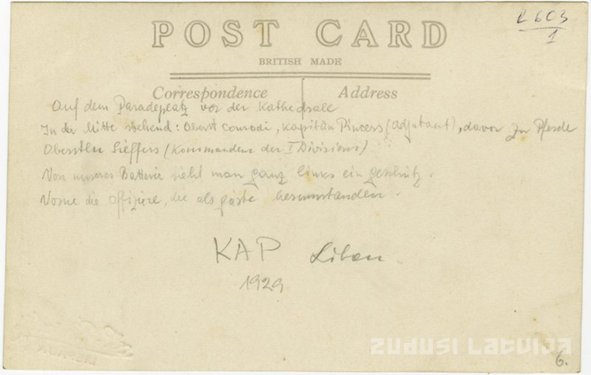 2603
1
POST CARD
BRITISH MADE
Correspondence Address
Auf dem Paradeplatz vor der Kathedrale
In der Mitte stehend: Oberst Conradi, Kapitän Pinvers (Adjutant), davor zu Pferde
Oberstltn Sieffers (Kommandeur der I Divisions)
Von unserer Batterie sieht man ganz links ein Geschütz.
Vorne die Offiziere, die als Gäste herumstanden.
KAP Liban.
1929
ZUDUSI LATVIJA
6.